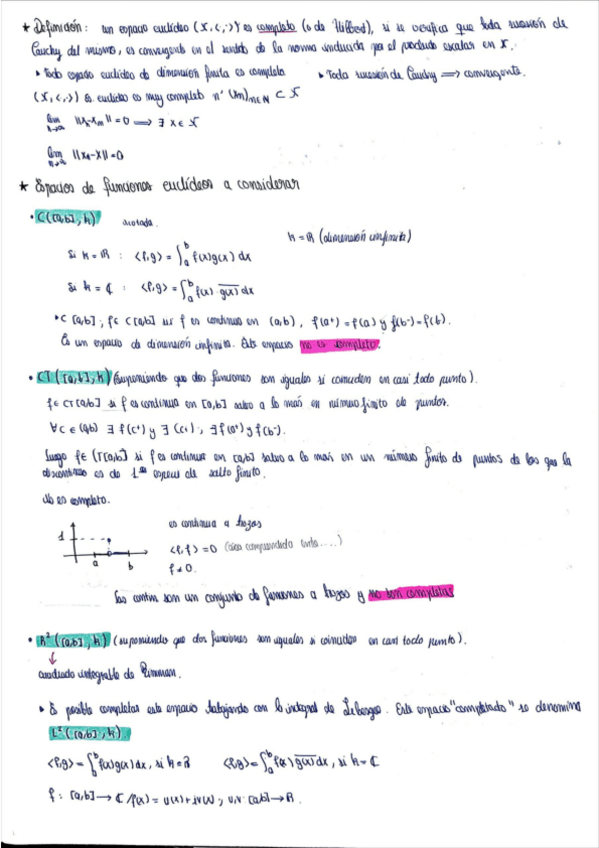 * Definición: un espacio euclídeo (X, <,·>) es completo (o de Hilbert), si se verifica que toda sucesión de
Cauchy del mismo, es convergente en el sentido de la norma inducida por el producto escalar en X.
• Todo espacio euclídeo de dimensión finita es completo • Toda sucesión de Cauchy ⟹ convergente.
(X, <,·>) es euclídeo es muy completo n' (xm)n∈N ⊂ X
lim ||xn-xm||=0 ⟹ ∃ x∈X
lim ||xn-x||=0
* Espacios de funciones euclídeos a considerar
• C([a,b], k)
acotada.
k=ℝ (dimensión infinita)
si k=ℝ : <f,g> = ∫ₐᵇ f(x)g(x)dx
si k=ℂ : <f,g> = ∫ₐᵇ f(x)·g̅(̅x̅)̅dx
• C [a,b]; f∈ C[a,b] si f es continua en (a,b), f(a⁺)=f(a) y f(b⁻)=f(b).
Es un espacio de dimensión infinita. Este espacio no es completo.
• CT([a,b], k) (suponiendo que dos funciones son iguales si coinciden en casi todo punto).
f∈CT[a,b] si f es continua en [a,b] salvo a lo más en número finito de puntos.
∀c∈(a,b) ∃ f(c⁺) y ∃ f(c⁻); ∃f(a⁺) y f(b⁻).
Luego f∈CT[a,b] si f es continua en [a,b] salvo a lo más en un número finito de puntos de los que la
es de 1ª especie de salto finito.
No es completo.
es continua a trozos
1
<f,f> = 0
a b
f≠0.
son un conjunto de funciones a trozos y no son completas
• R²([a,b], k) (suponiendo que dos funciones son iguales si coinciden en casi todo punto).
cuadrado integrable de Riemman.
• Es posible completar este espacio trabajando con la integral de Lebesgue. Este espacio "completado" se denomina
L²([a,b], k).
<f,g> = ∫ᵇ f(x)g(x)dx, si k=ℝ <f,g> = ∫ₐᵇ f(x) g̅(̅x̅)̅dx, si k=ℂ
f: [a,b] → ℂ / f(x) = u(x)+iv(x); u,v: [a,b] → ℝ.